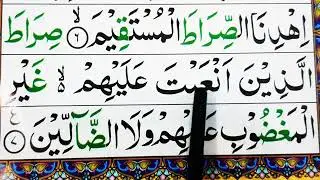 اِهْدِنَا الصِّرَاطَ الْمُسْتَقِيْمَ ۙ‏﴿۶﴾ صِرَاطَ
الَّذِيْنَ اَنْعَمْتَ عَلَيْهِمْ ۙ۬ غَيْرِ
الْمَغْضُوْبِ عَلَيْهِمْ وَلَا الضَّآلِّيْنَ ﴿۷﴾ ع